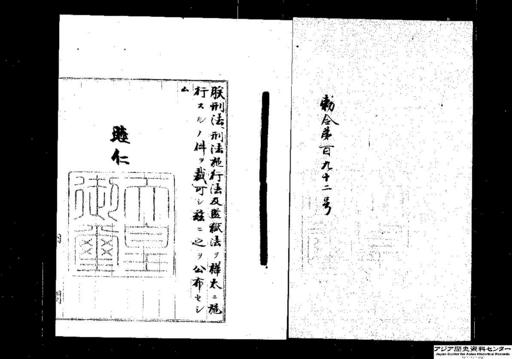 勅令第百九十二号
朕刑法刑法施行法及監獄法ヲ樺太ニ施
行スルノ件ヲ裁可シ茲ニ之ヲ公布セシ
ム
睦仁
天皇御璽
アジア歴史資料センター
Japan Center for Asian Historical Records